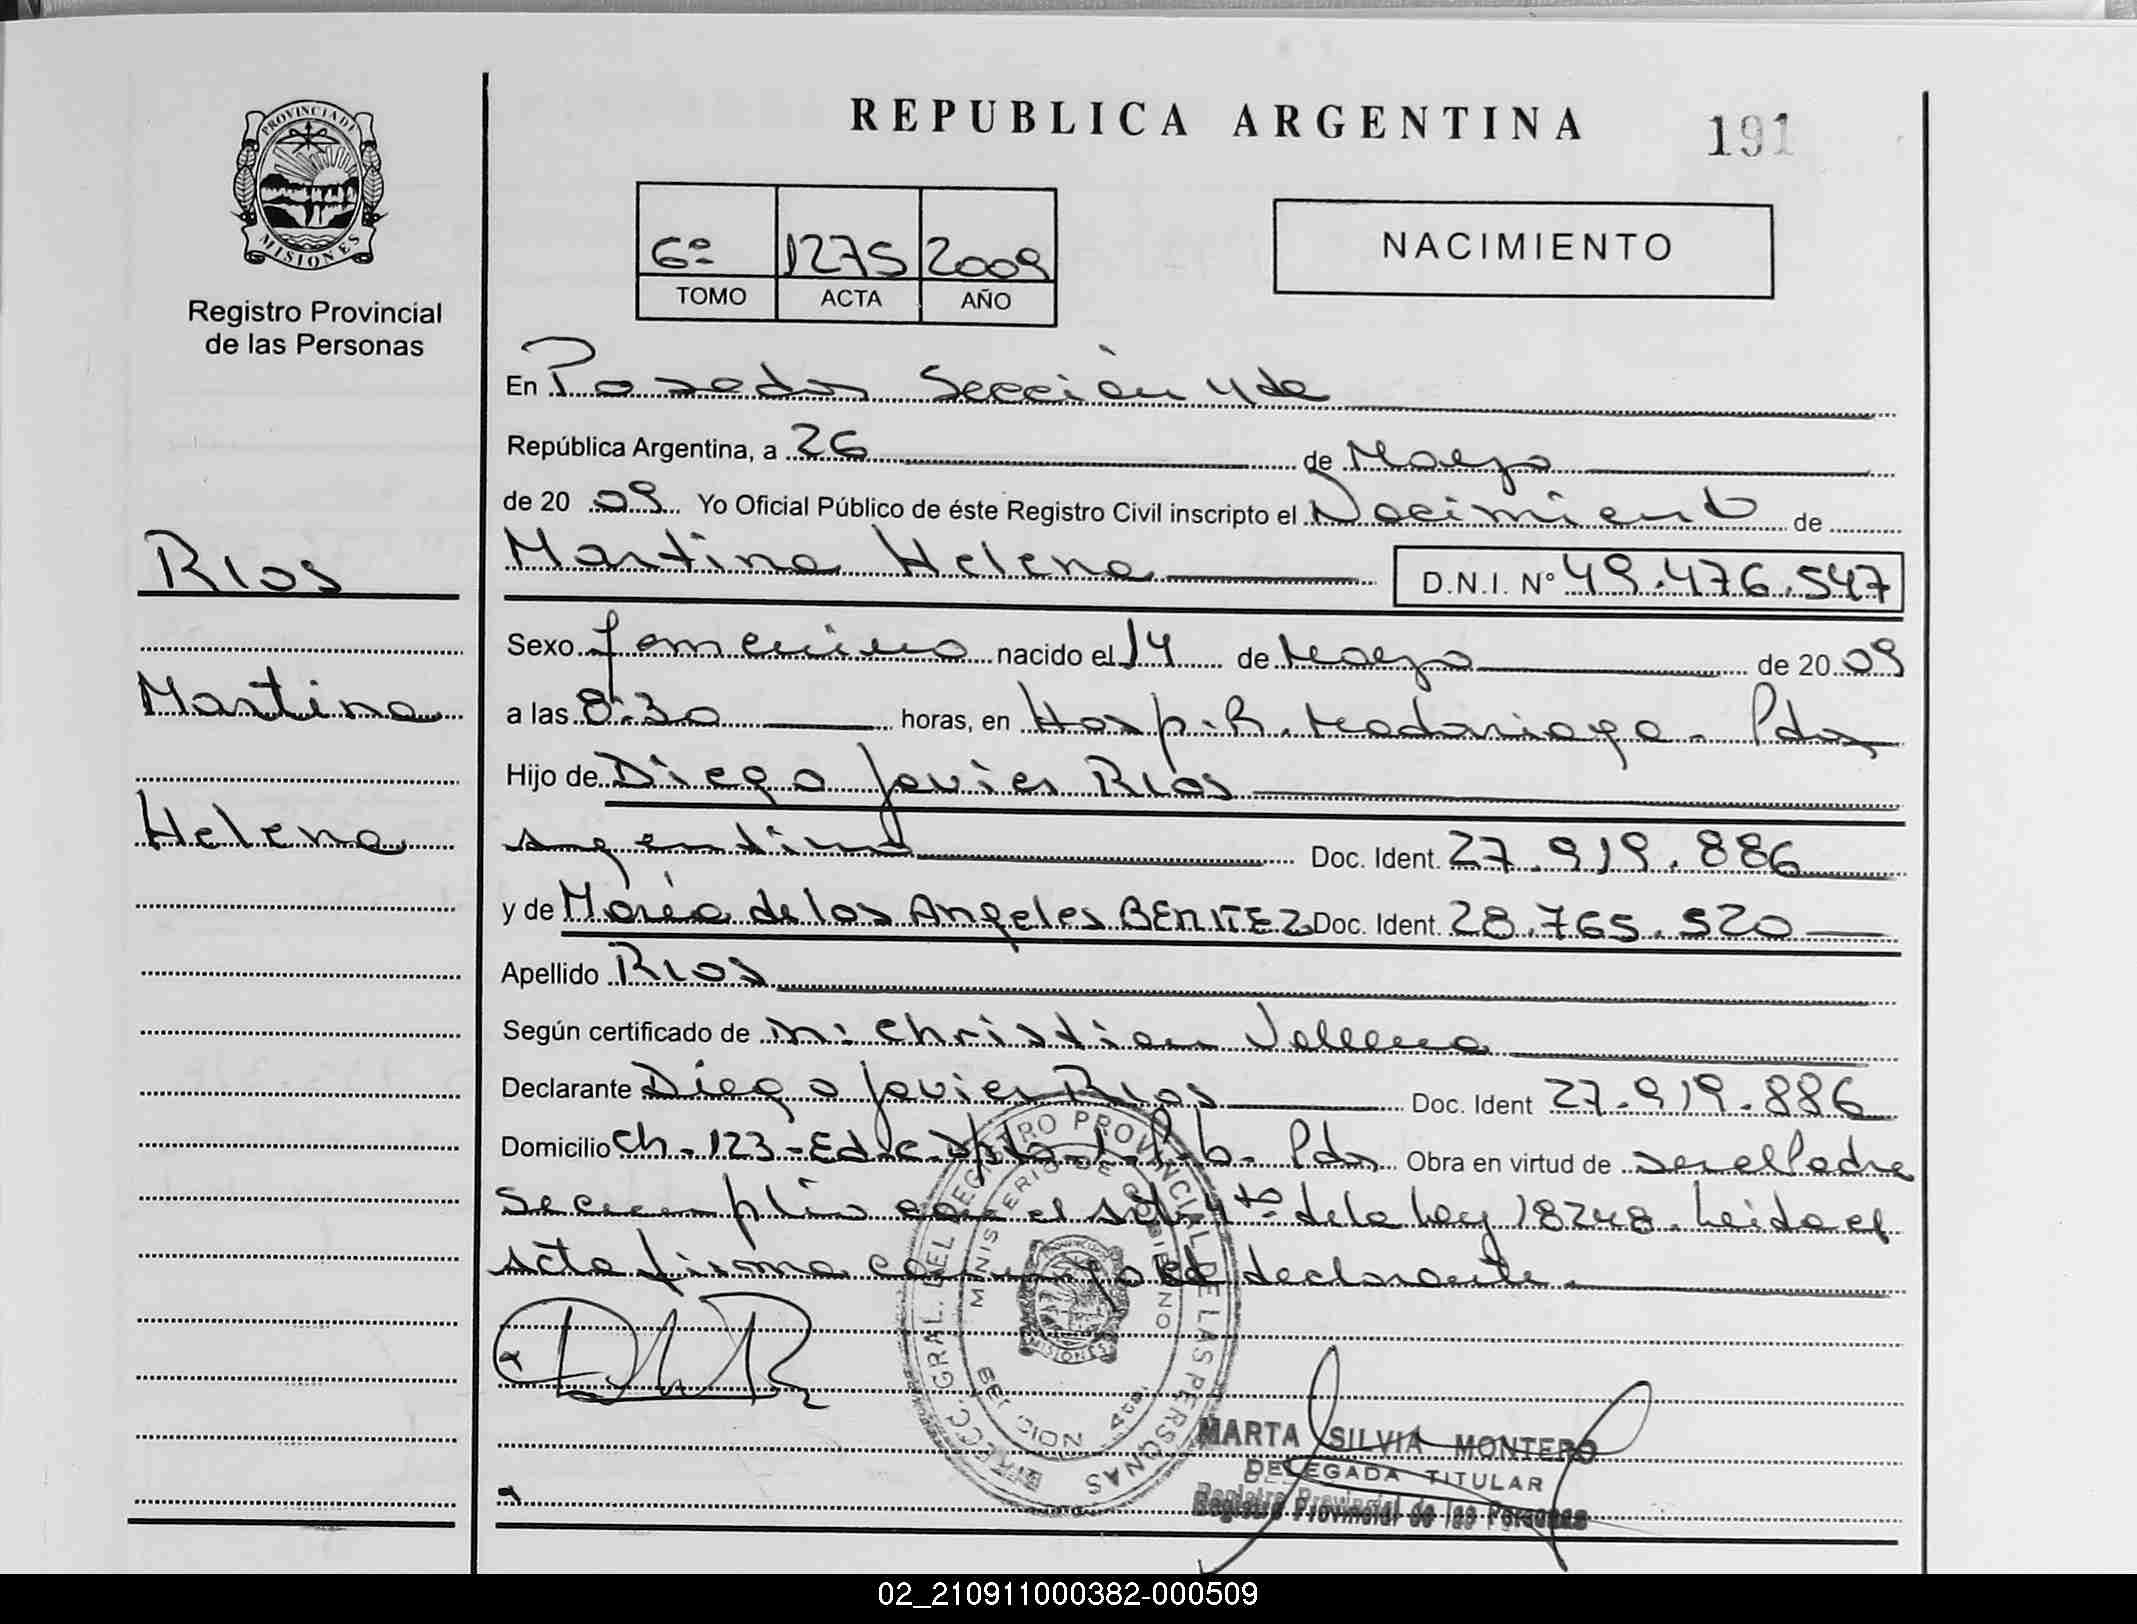 PROVINCIA DE
MISIONES
Registro Provincial
de las Personas
RIOS
Martina
Helena
REPUBLICA ARGENTINA 191
6º 1275 2009
TOMO ACTA AÑO
NACIMIENTO
En Posadas Sección 4ta
República Argentina, a 26 de Marzo
de 20 09 Yo Oficial Público de éste Registro Civil inscripto el Nacimiento de
Martina Helena D.N.I. Nº 49.476.547
Sexo femenino nacido el 14 de Marzo de 20 09
a las 8:30 horas, en Hosp. R. Madariaga - Pdas
Hijo de Diego Javier RIOS
Argentino Doc. Ident. 27.919.886
y de María de los Angeles BENITEZ Doc. Ident. 28.765.520
Apellido RIOS
Según certificado de Christian
Declarante Diego Javier RIOS Doc. Ident 27.919.886
Domicilio Ch - 123 - Ed. C - Dpto - P.b - Pdas Obra en virtud de ser el Padre
Se cumplio con el Art. 4to de la Ley 18248. Leida el
Acta firma conmigo el declarante.
DIRECC. GRAL. DEL REGISTRO PROVINCIAL DE LAS PERSONAS
MINISTERIO DE GOBIERNO
MISIONES
MARTA SILVIA MONTERO
DELEGADA TITULAR
Registro Provincial de las Personas
02_210911000382-000509